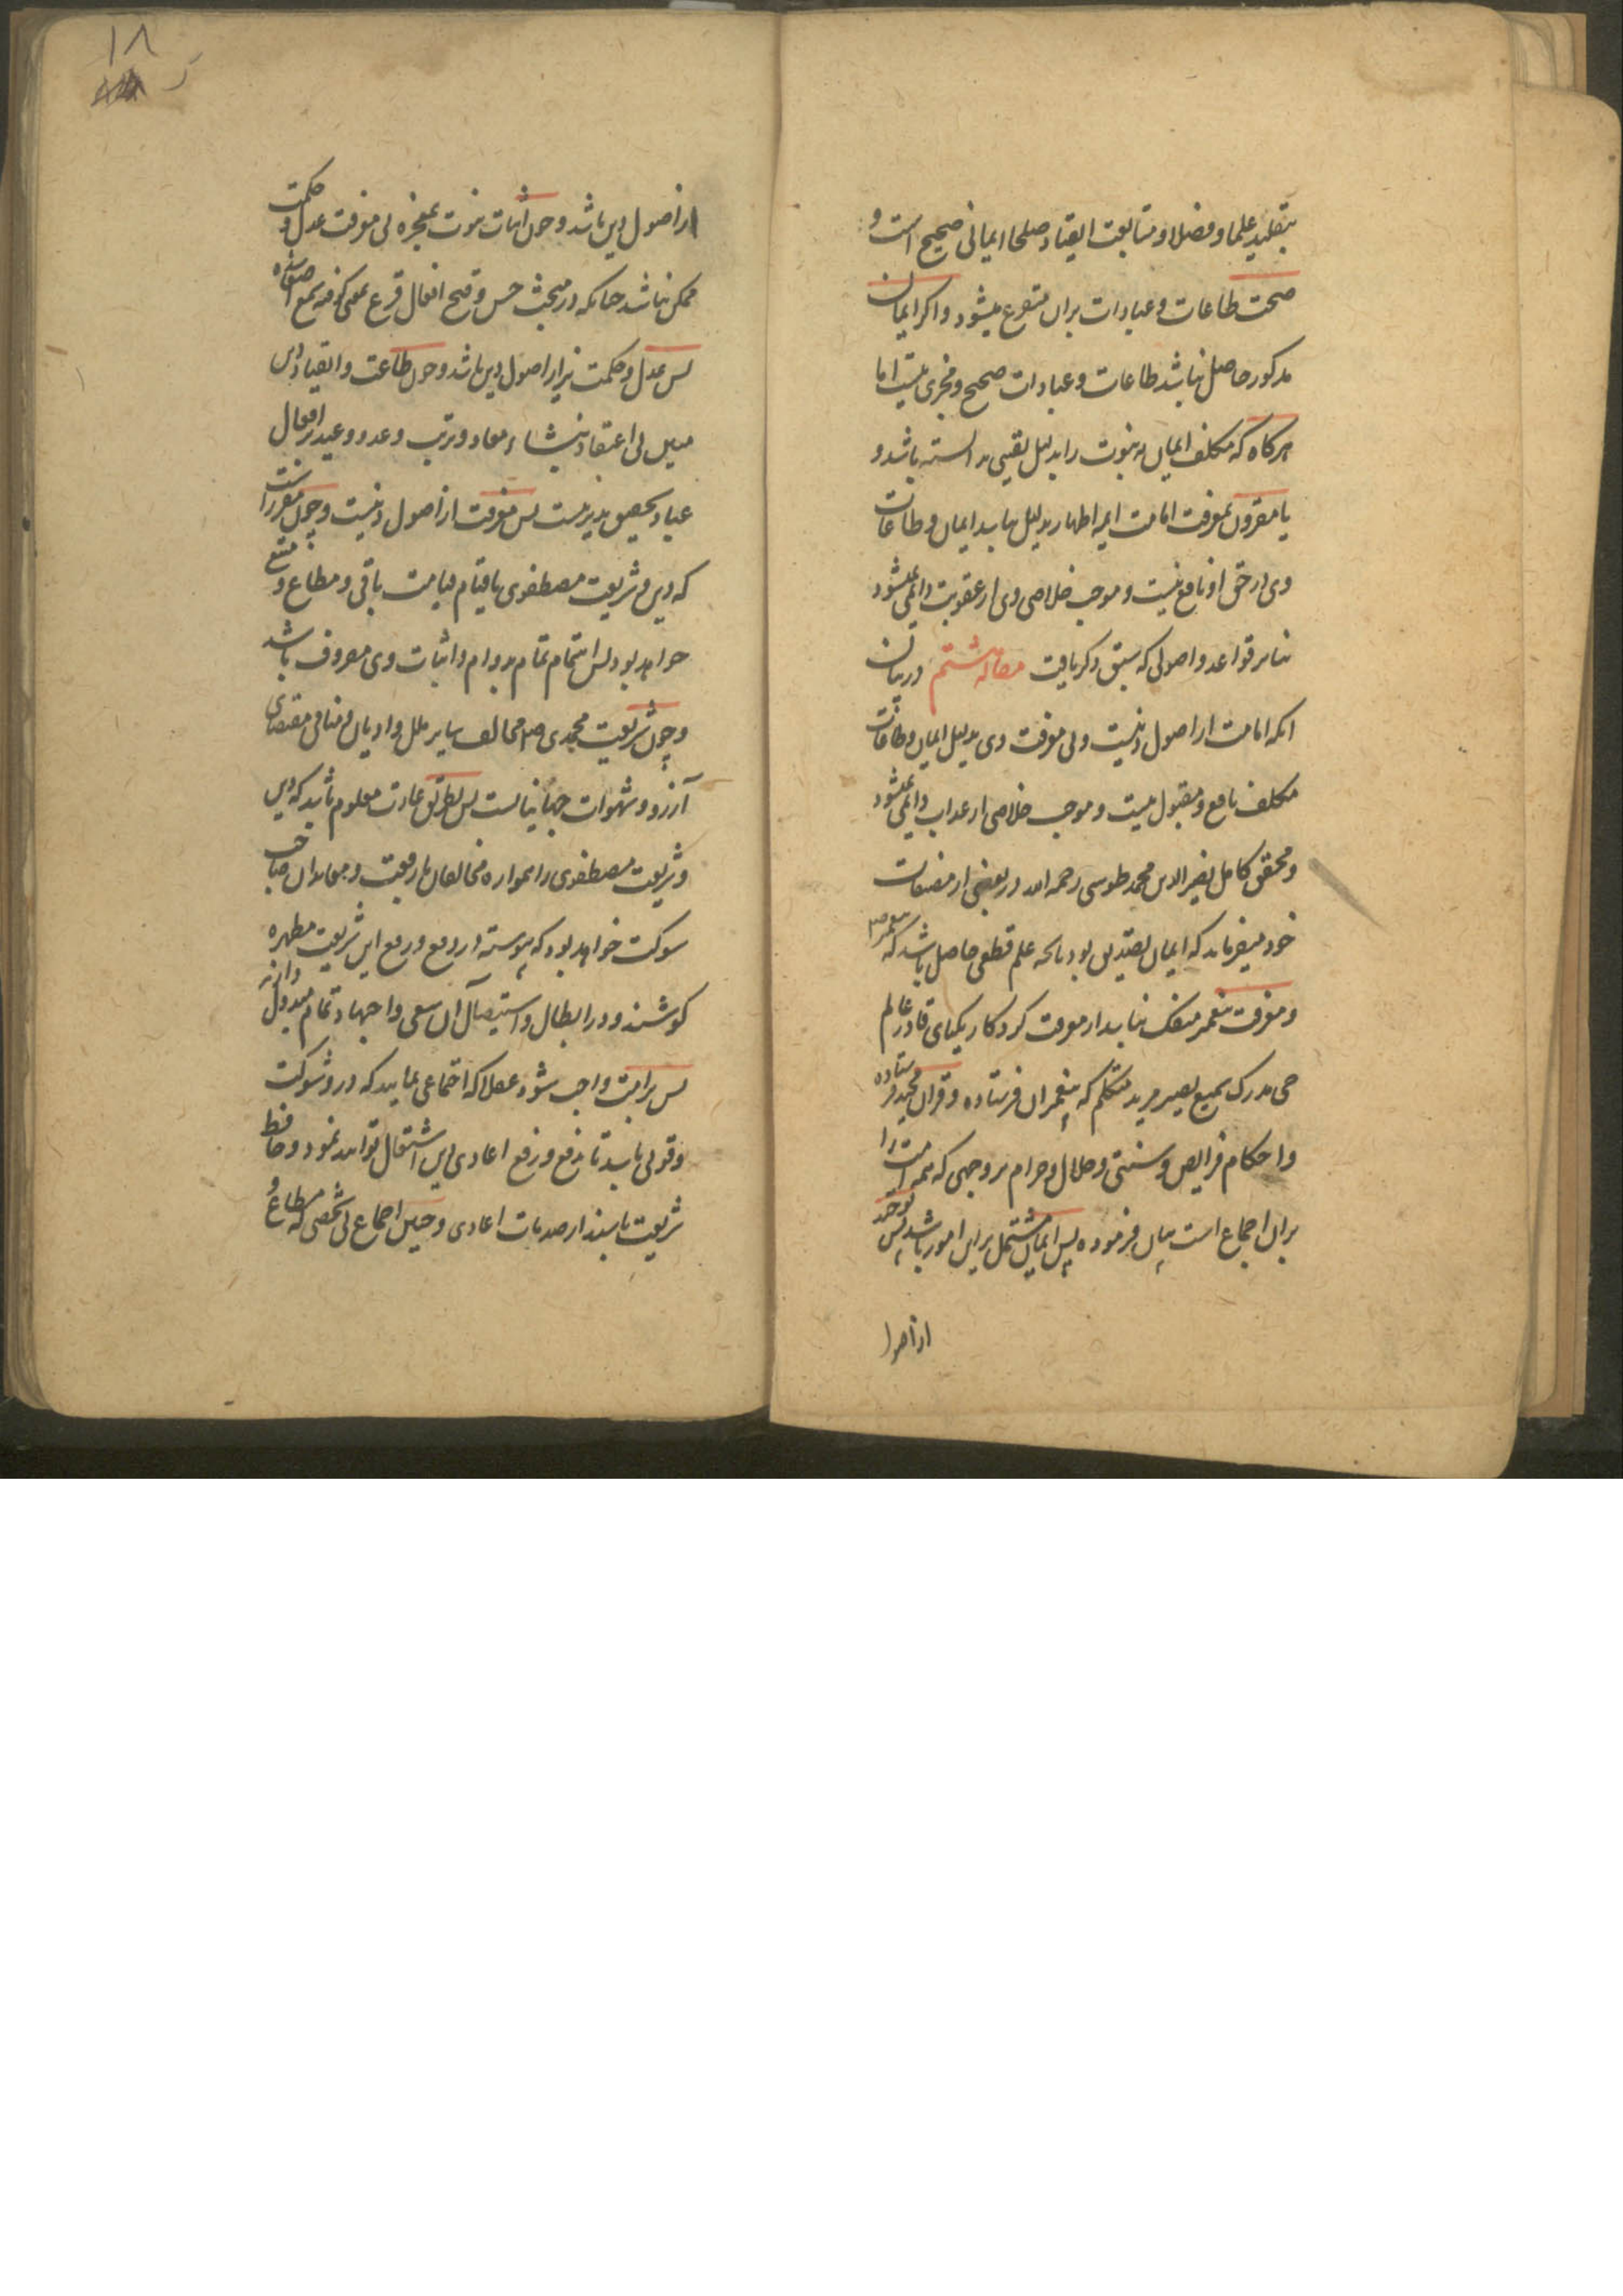 بتقلید علما و فضلا و متابعت اتقیا و صلحا ایمانی صحیح است و
صحت طاعات و عبادات بران متفرع میشود و اکر ایمان
مذکور حاصل نباشد طاعات و عبادات صحیح و مجزی نیست اما
هرکاه که مکلف ایمان به نبوت را بدلیل یقینی دانسته باشد و
یا مقرون بمعرفت امامت ایمه اطهار بدلیل نباشد ایمان و طاعات
وی در حق او نافع نیست و موجب خلاصی وی از عقوبت دایمی نمیشود
بنابر قواعد و اصولی که سبق ذکر یافت مقاله هشتم در بیان
انکه امامت از اصول دینست و بی معرفت وی بدلیل ایمان و طاعات
مکلف نافع و مقبول نیست و موجب خلاصی از عذاب دایمی نمیشود
و محقق کامل نصیر الدین محمد طوسی رحمه الله در بعضی از مصنفات
خود میفرماید که ایمان تصدیق بود بانچه علم قطعی حاصل باشد که پیغمبر ص
و معرفت پیغمبر منفک نباشد از معرفت کردکار یکتای قادر عالم
حی مدرک سمیع بصیر مرید متکلم که پیغمبران فرستاده و قران مجید فرستاده
و احکام فرایض و سنتی و حلال و حرام بر وجهی که همه امت را
بران اجماع است بیان فرموده پس ایمان مشتمل برین امور باشد پس توحید
از اصول
۱۸
از اصول دین باشد و چون اثبات نبوت بمعجزه بی معرفت عدل و حکمت
ممکن نباشد چنانکه در مبحث حسن و قبح افعال
پس عدل و حکمت نیز از اصول دین باشد و چون طاعت و انقیاد دین
میل بی اعتقاد بنشاء معاد و ترتب وعد و وعید بر افعال
عباد تحقیق پذیر نیست پس معرفت از اصول دینست و چون مقرر است
که دین و شریعت مصطفوی تا قیام قیامت باقی و مطاع و متبع
خواهد بود پس اهتمام تمام بدوام و اثبات وی مصروف باشد
و چون شریعت محمدی ص مخالف سایر ملل و ادیان و منافی مقتضای
آرزو و شهوات جهانیانست پس بطریق عادت معلوم باشد که دین
و شریعت مصطفوی را همواره مخالفان با رفعت و معاندان صاحب
شوکت خواهد بود که پیوسته در دفع و رفع این شریعت مطهره
کوشند و در ابطال و استیصال آن سعی و اجتهاد تمام مبذول دارند
پس برامت واجب شود عقلا که اجتماعی نمایند که در و شوکت
و قوتی باشد تا بدفع و رفع اعادی دین اشتغال توانند نمود و حافظ
شریعت باشند از صدمات اعادی و چنین اجماع بی شخصی که مطاع و